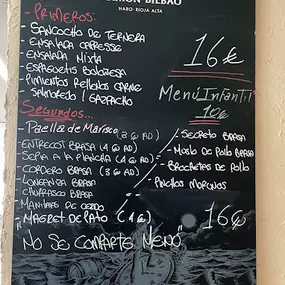 RAMÓN BILBAO
HARO · RIOJA ALTA
- PRIMEROS:
- SANCOCHO DE TERNERA
- ENSALADA CAPRESSE
- ENSALADA MIXTA
- ESPAGUETIS BOLOÑESA
- PIMIENTOS RELLENOS CARNE
- SALMOREJO / GAZPACHO
16€
Menú Infantil
10€
Segundos...
- Paella de Marisco (3€ AD)
- ENTRECOT BRASA (4€ AD)
- SEPIA A LA PLANCHA (4€ AD)
- CORDERO BRASA (3€ AD)
- LONGANIZA BRASA
- CHURRASCO BRASA
- MANITAS DE CERDO
- MAGRET DE PATO (4€)
- SECRETO BRASA
- Muslo DE POLLO BRASA
- BROCHETAS DE POLLO
- PINCHOS MORUNOS
16€
"NO SE COMPARTE MENÚ"